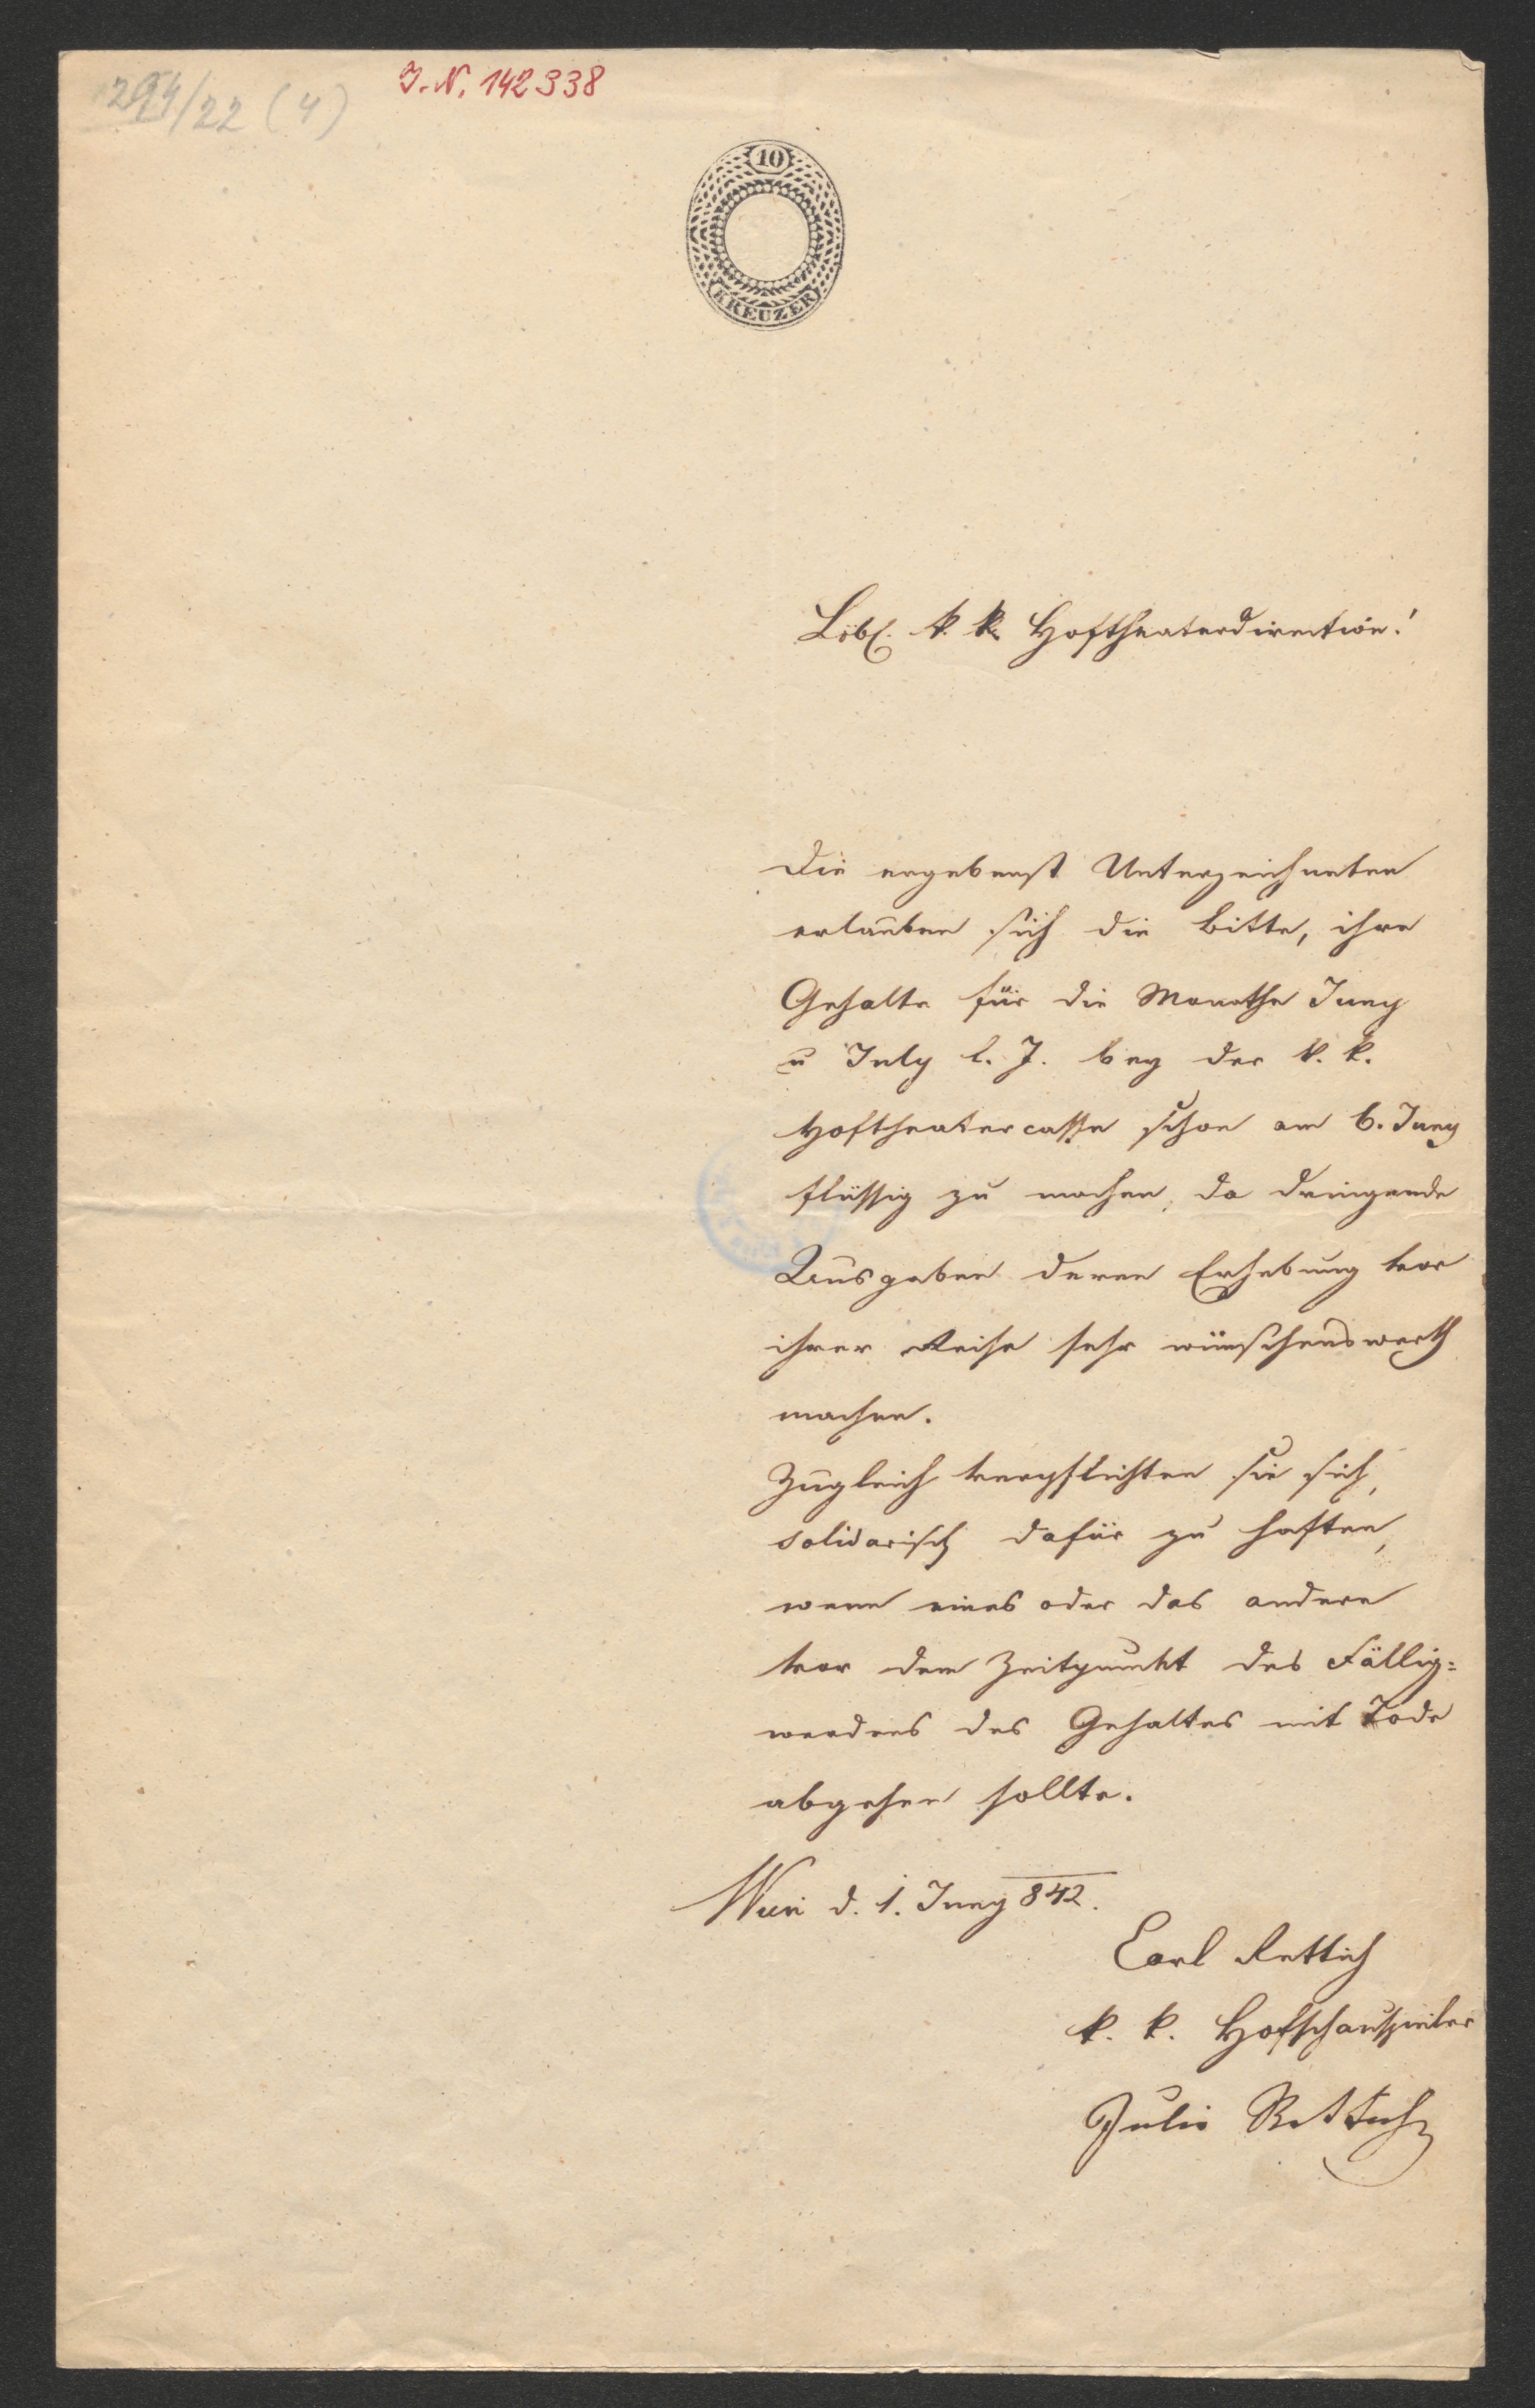 294/22 (4)
I. N. 142338
10
KREUZER
Löbl. k. k. Hoftheaterdirection!
Die ergebenst Unterzeichneten
erlauben sich die Bitte, ihre
Gehalte für die Monathe Juny
u July l. J. bey der k. k.
Hoftheatercasse schon am 6. Juny
flüssig zu machen, da dringende
Ausgaben deren Erhebung vor
ihrer Reise sehr wünschenswerth
machen.
Zugleich verpflichten sie sich,
solidarisch dafür zu haften,
wenn eines oder das andere
vor dem Zeitpunkt des Fällig=
werdens des Gehaltes mit Tode
abgehen sollte.
Wien d. 1. Juny 842.
Carl Rettich
k. k. Hofschauspieler
Julie Rettich